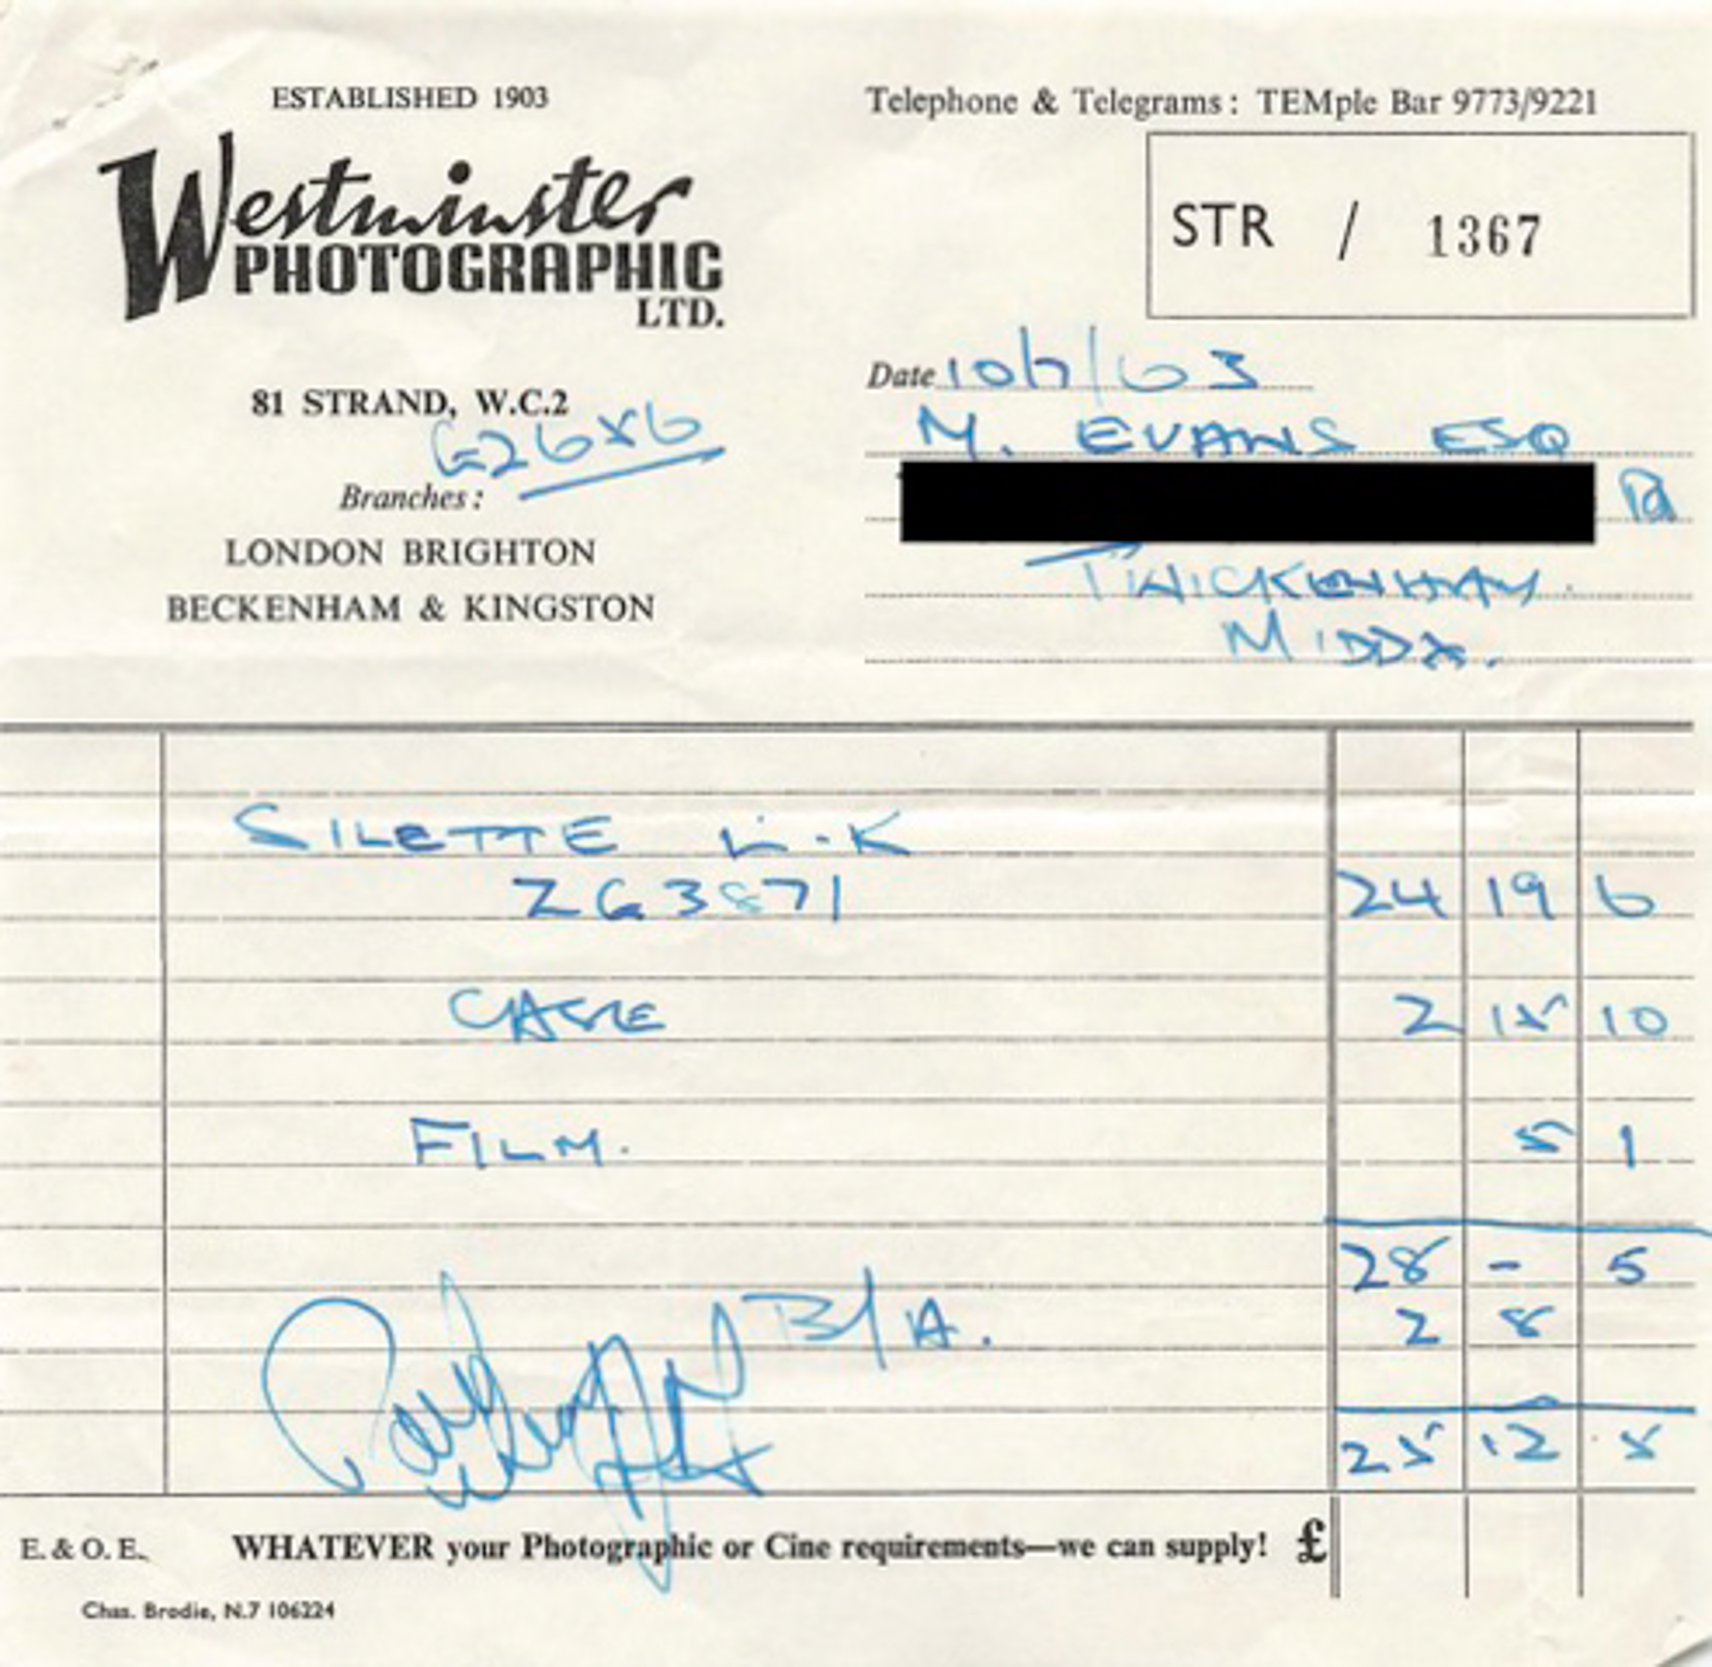 ESTABLISHED 1903
Telephone & Telegrams: TEMple Bar 9773/9221
Westminster
PHOTOGRAPHIC
LTD.
STR / 1367
81 STRAND, W.C.2
G2686
Date 10/7/63
M. EVANS ESQ
Rd
TWICKENHAM.
MIDDX.
Branches:
LONDON BRIGHTON
BECKENHAM & KINGSTON
SILETTE L.K
ZG3871 24 19 6
CASE 2 15 10
FILM. 5 1
28 - 5
B/A. 2 8
25 12 5
E. & O. E. WHATEVER your Photographic or Cine requirements—we can supply! £
Chas. Brodie, N.7 106224